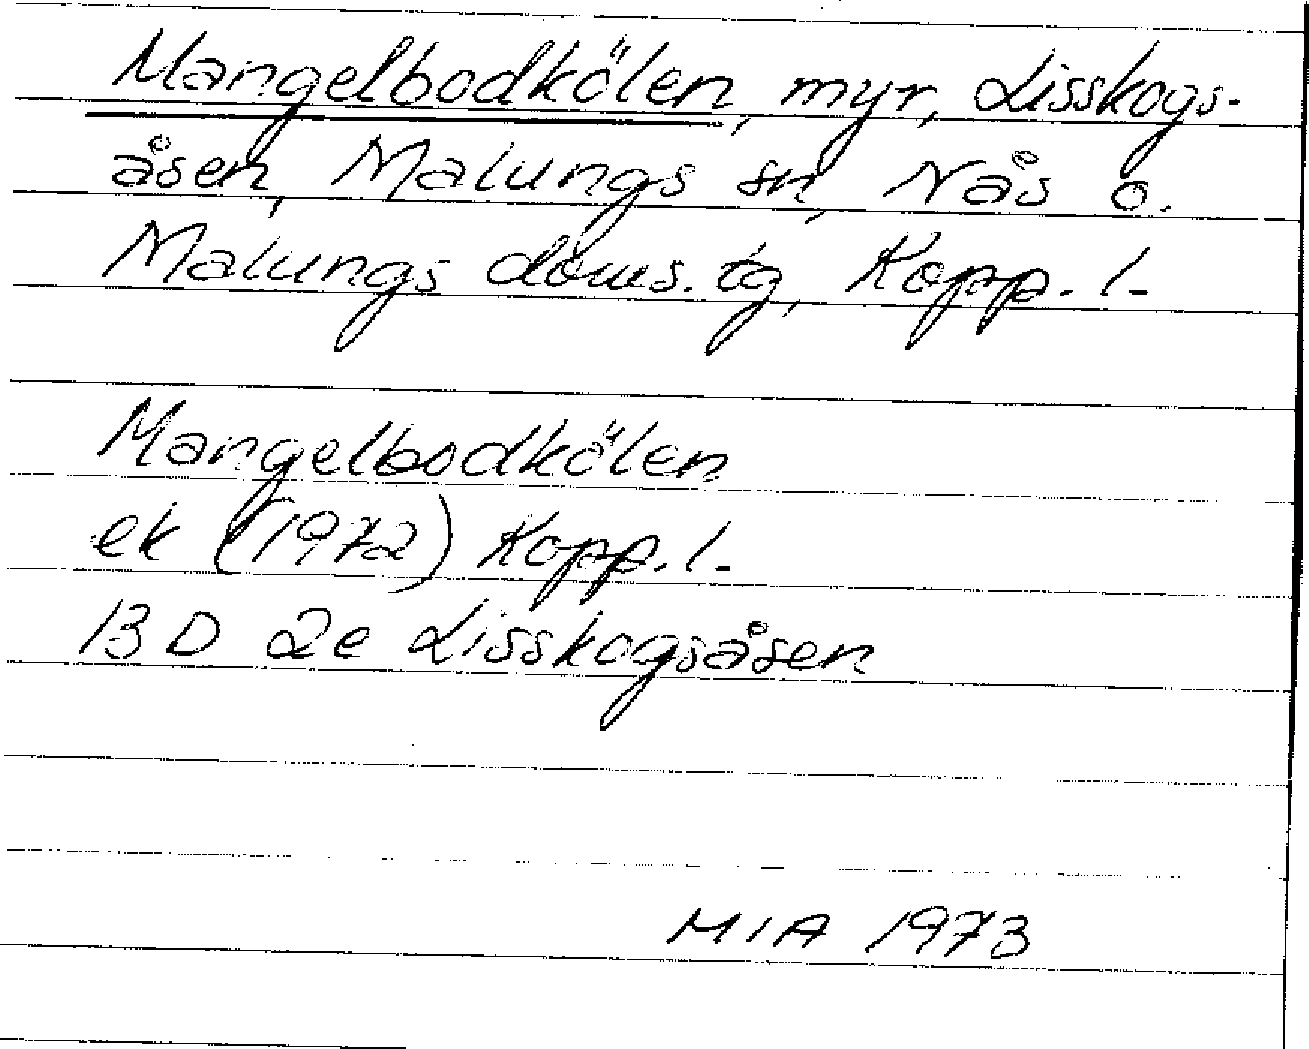 Mangelbodkölen, myr, Lisskogs-
åsen, Malungs sn, Nås o.
Malungs doms. tg, Kopp. l.
Mangelbodkölen
ek (1972) Kopp. l.
13 D 2e Lisskogsåsen
MIA 1973